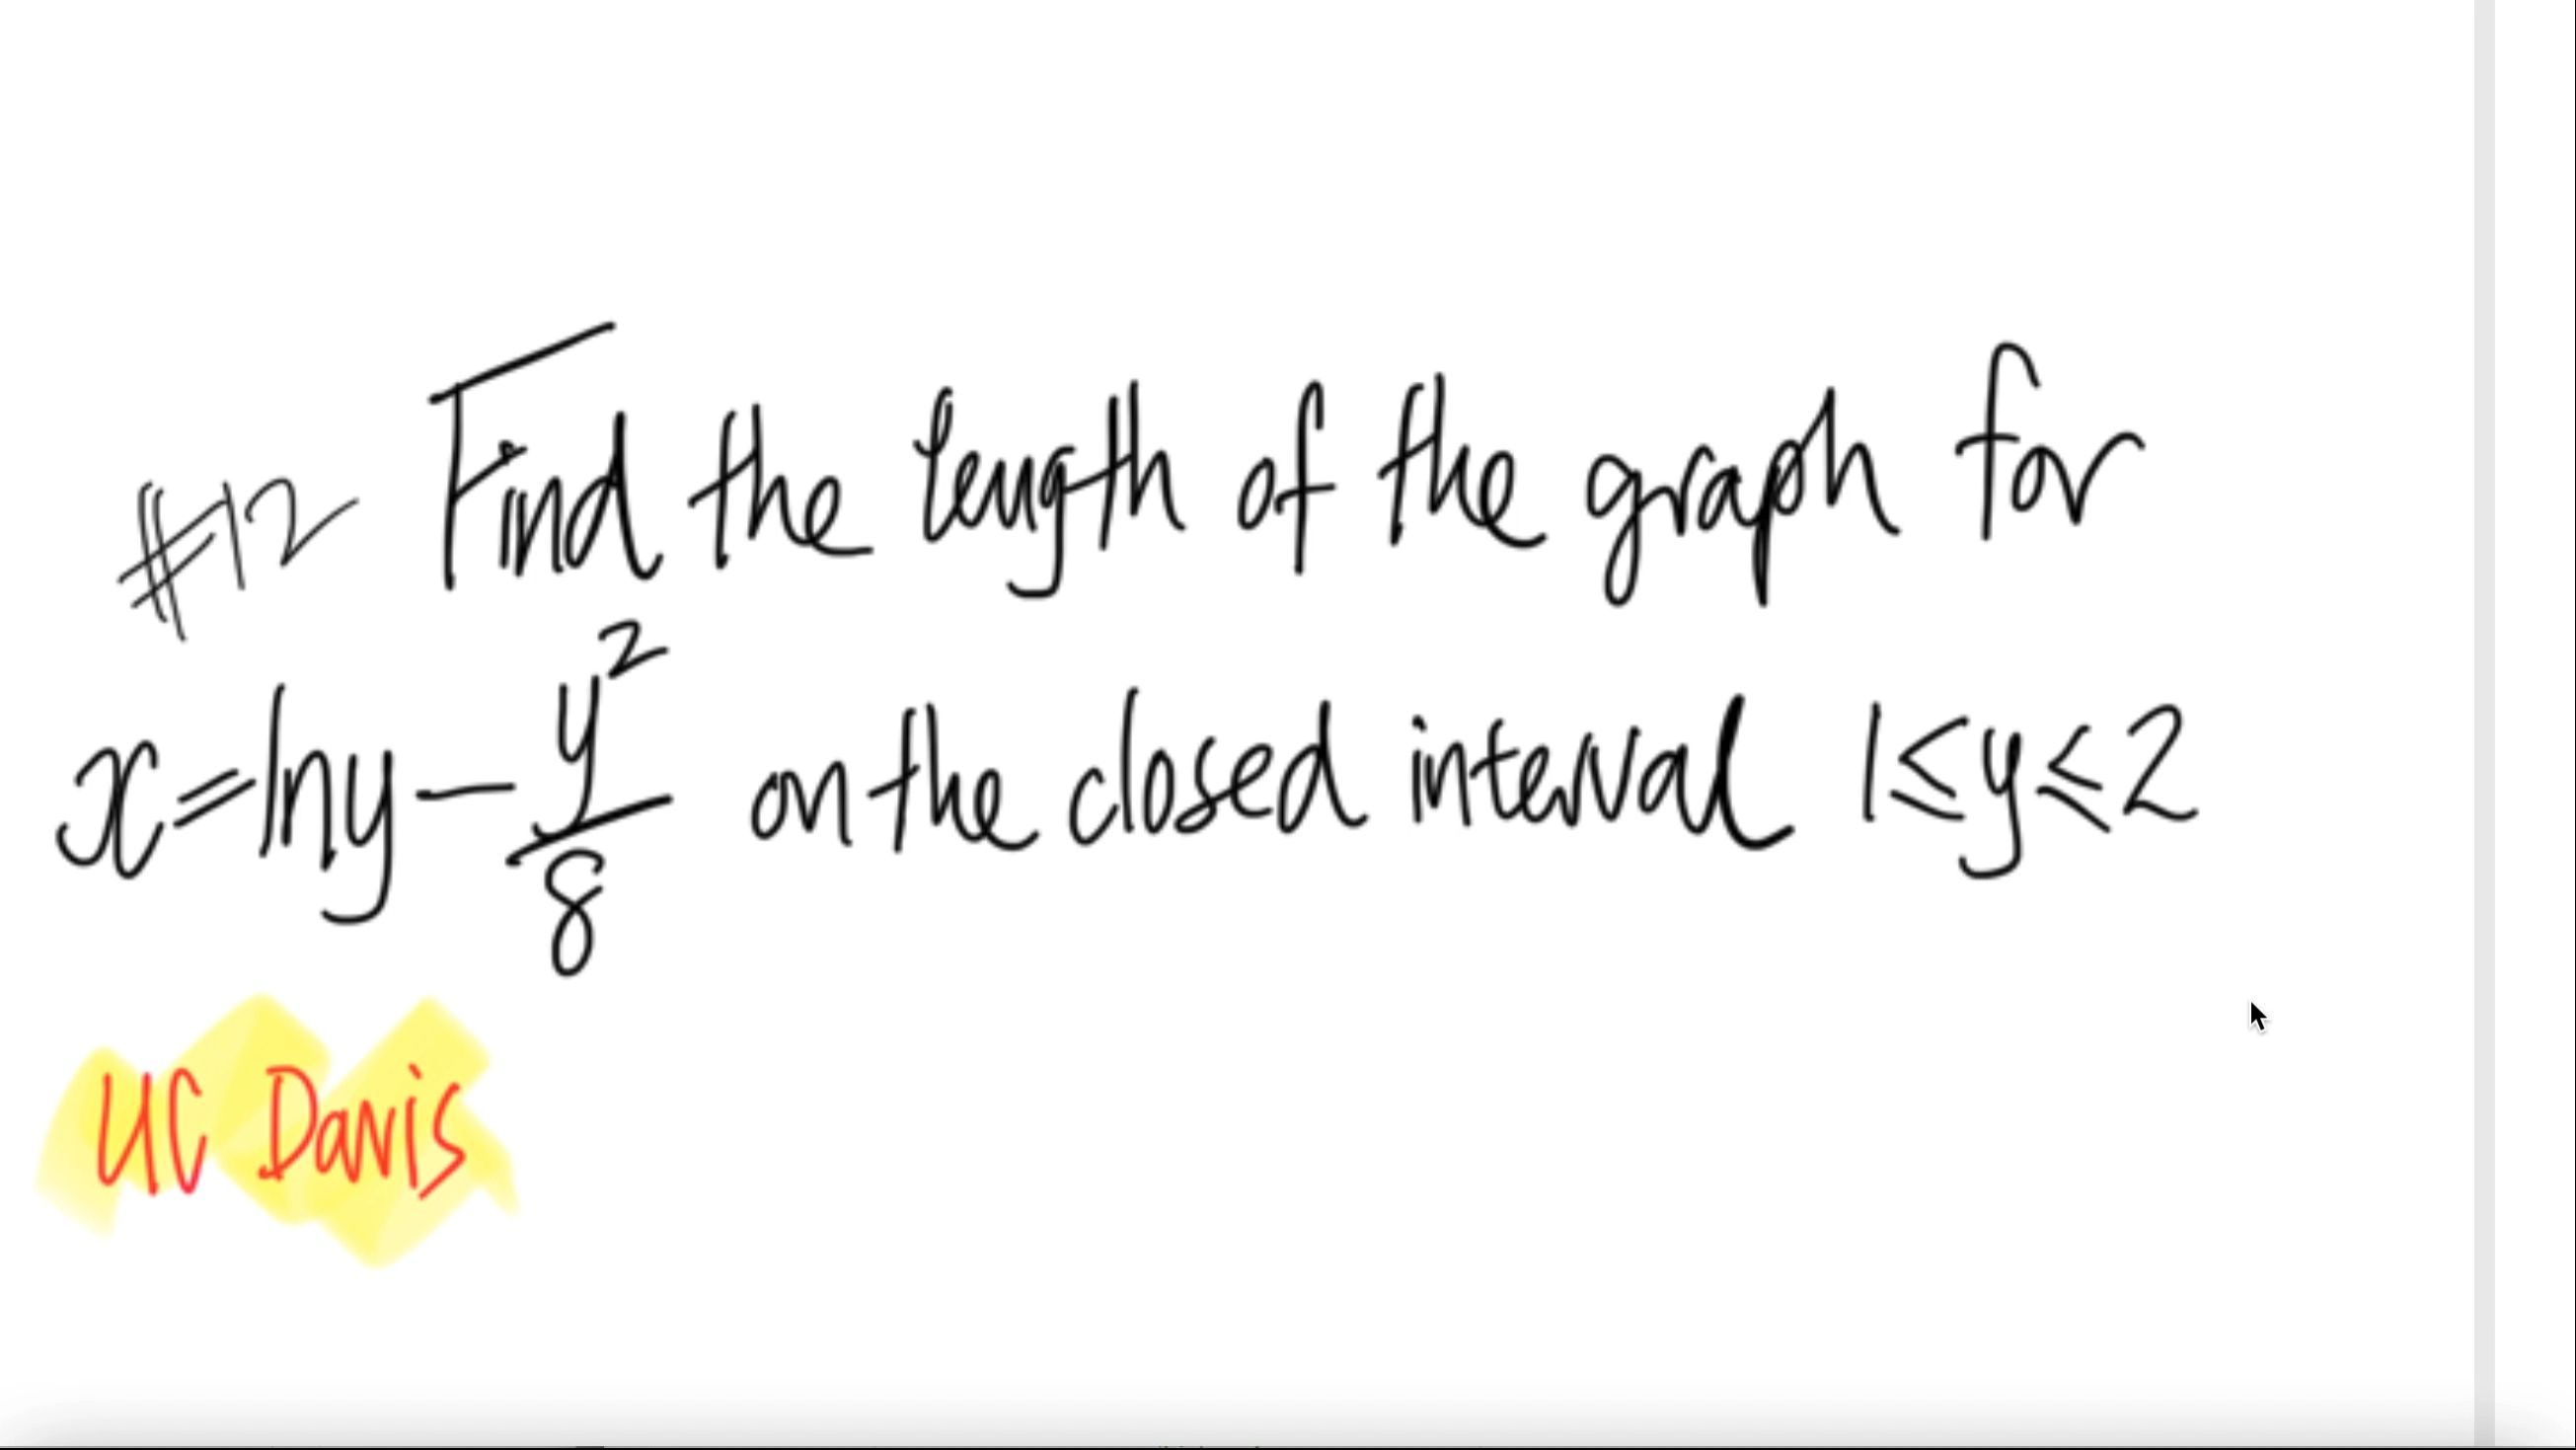 #12 Find the length of the graph for
x=lny-y²/8 on the closed interval 1≤y≤2
UC Davis